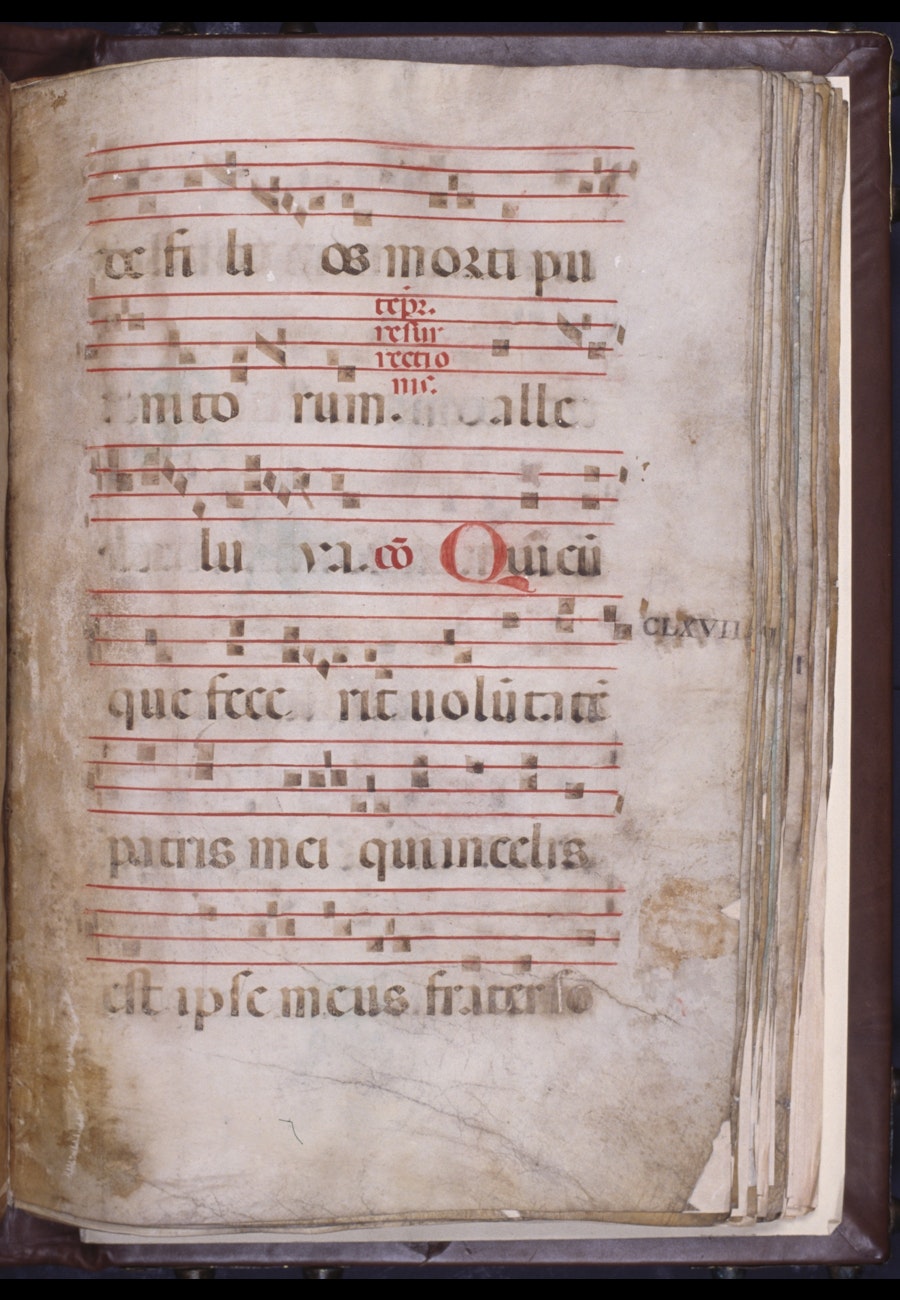 de fi li os morti pu
tẽpr.
resur
rectio
nis.
nito rum. alle
lu ya. cõ Quicũ
CLXVII
que fece rit uolũtatẽ
patris mei qui in celis
est ipse meus frater so